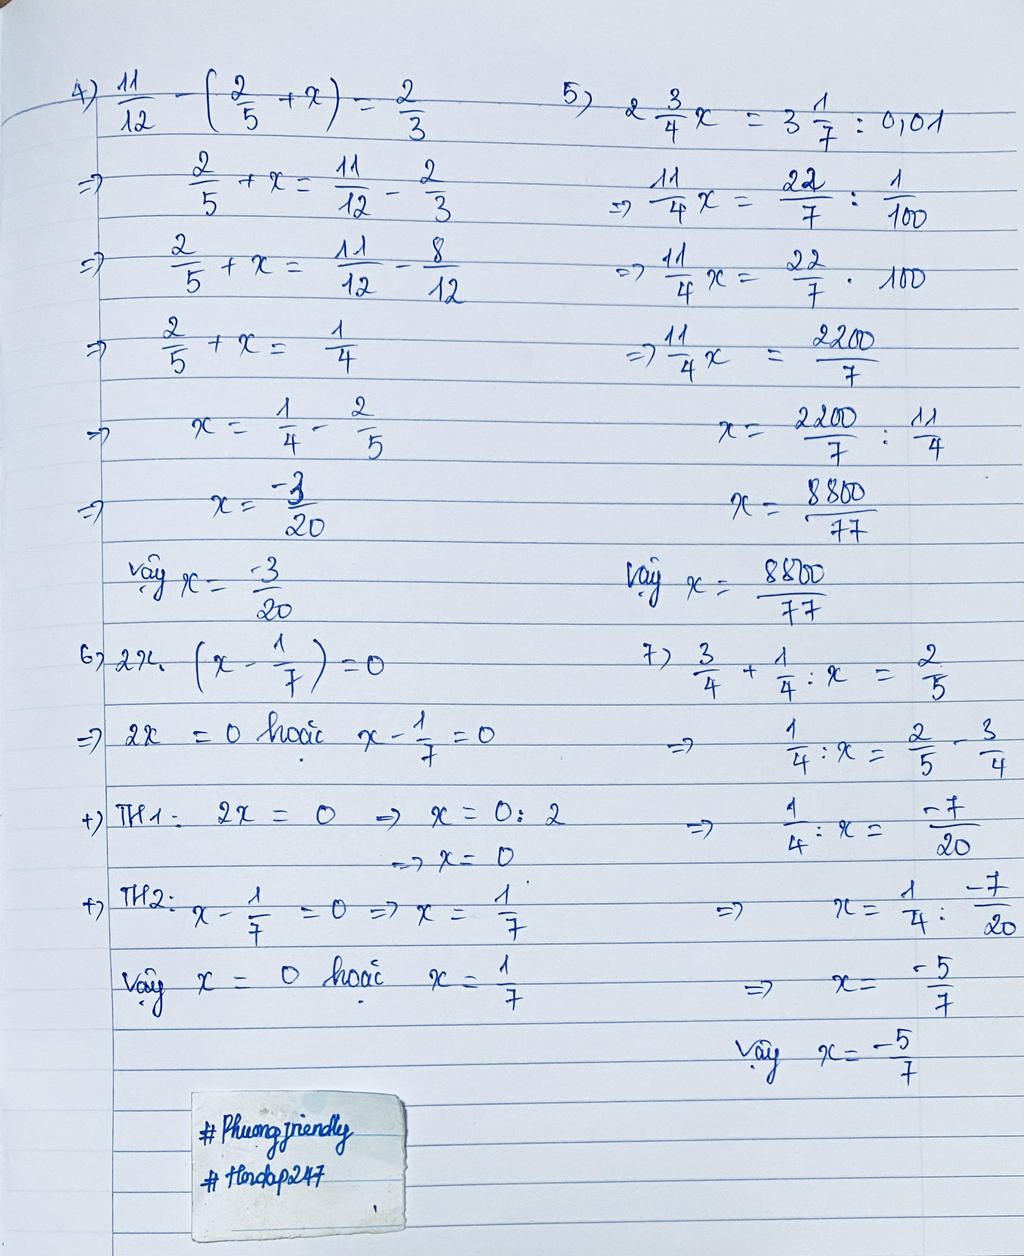 4) 11/12 - (2/5 + x) = 2/3
=> 2/5 + x = 11/12 - 2/3
=> 2/5 + x = 11/12 - 8/12
=> 2/5 + x = 1/4
=> x = 1/4 - 2/5
=> x = -3/20
Vậy x = -3/20
5) 2 3/4 x = 3 1/7 : 0,01
=> 11/4 x = 22/7 : 1/100
=> 11/4 x = 22/7 . 100
=> 11/4 x = 2200/7
x = 2200/7 : 11/4
x = 8800/77
Vậy x = 8800/77
6) 2x. (x - 1/7) = 0
=> 2x = 0 hoặc x - 1/7 = 0
+) TH1: 2x = 0 => x = 0 : 2
=> x = 0
+) TH2: x - 1/7 = 0 => x = 1/7
Vậy x = 0 hoặc x = 1/7
7) 3/4 + 1/4 : x = 2/5
=> 1/4 : x = 2/5 - 3/4
=> 1/4 : x = -7/20
=> x = 1/4 : -7/20
=> x = -5/7
Vậy x = -5/7
#Phuongfriendly
#Hoidap247